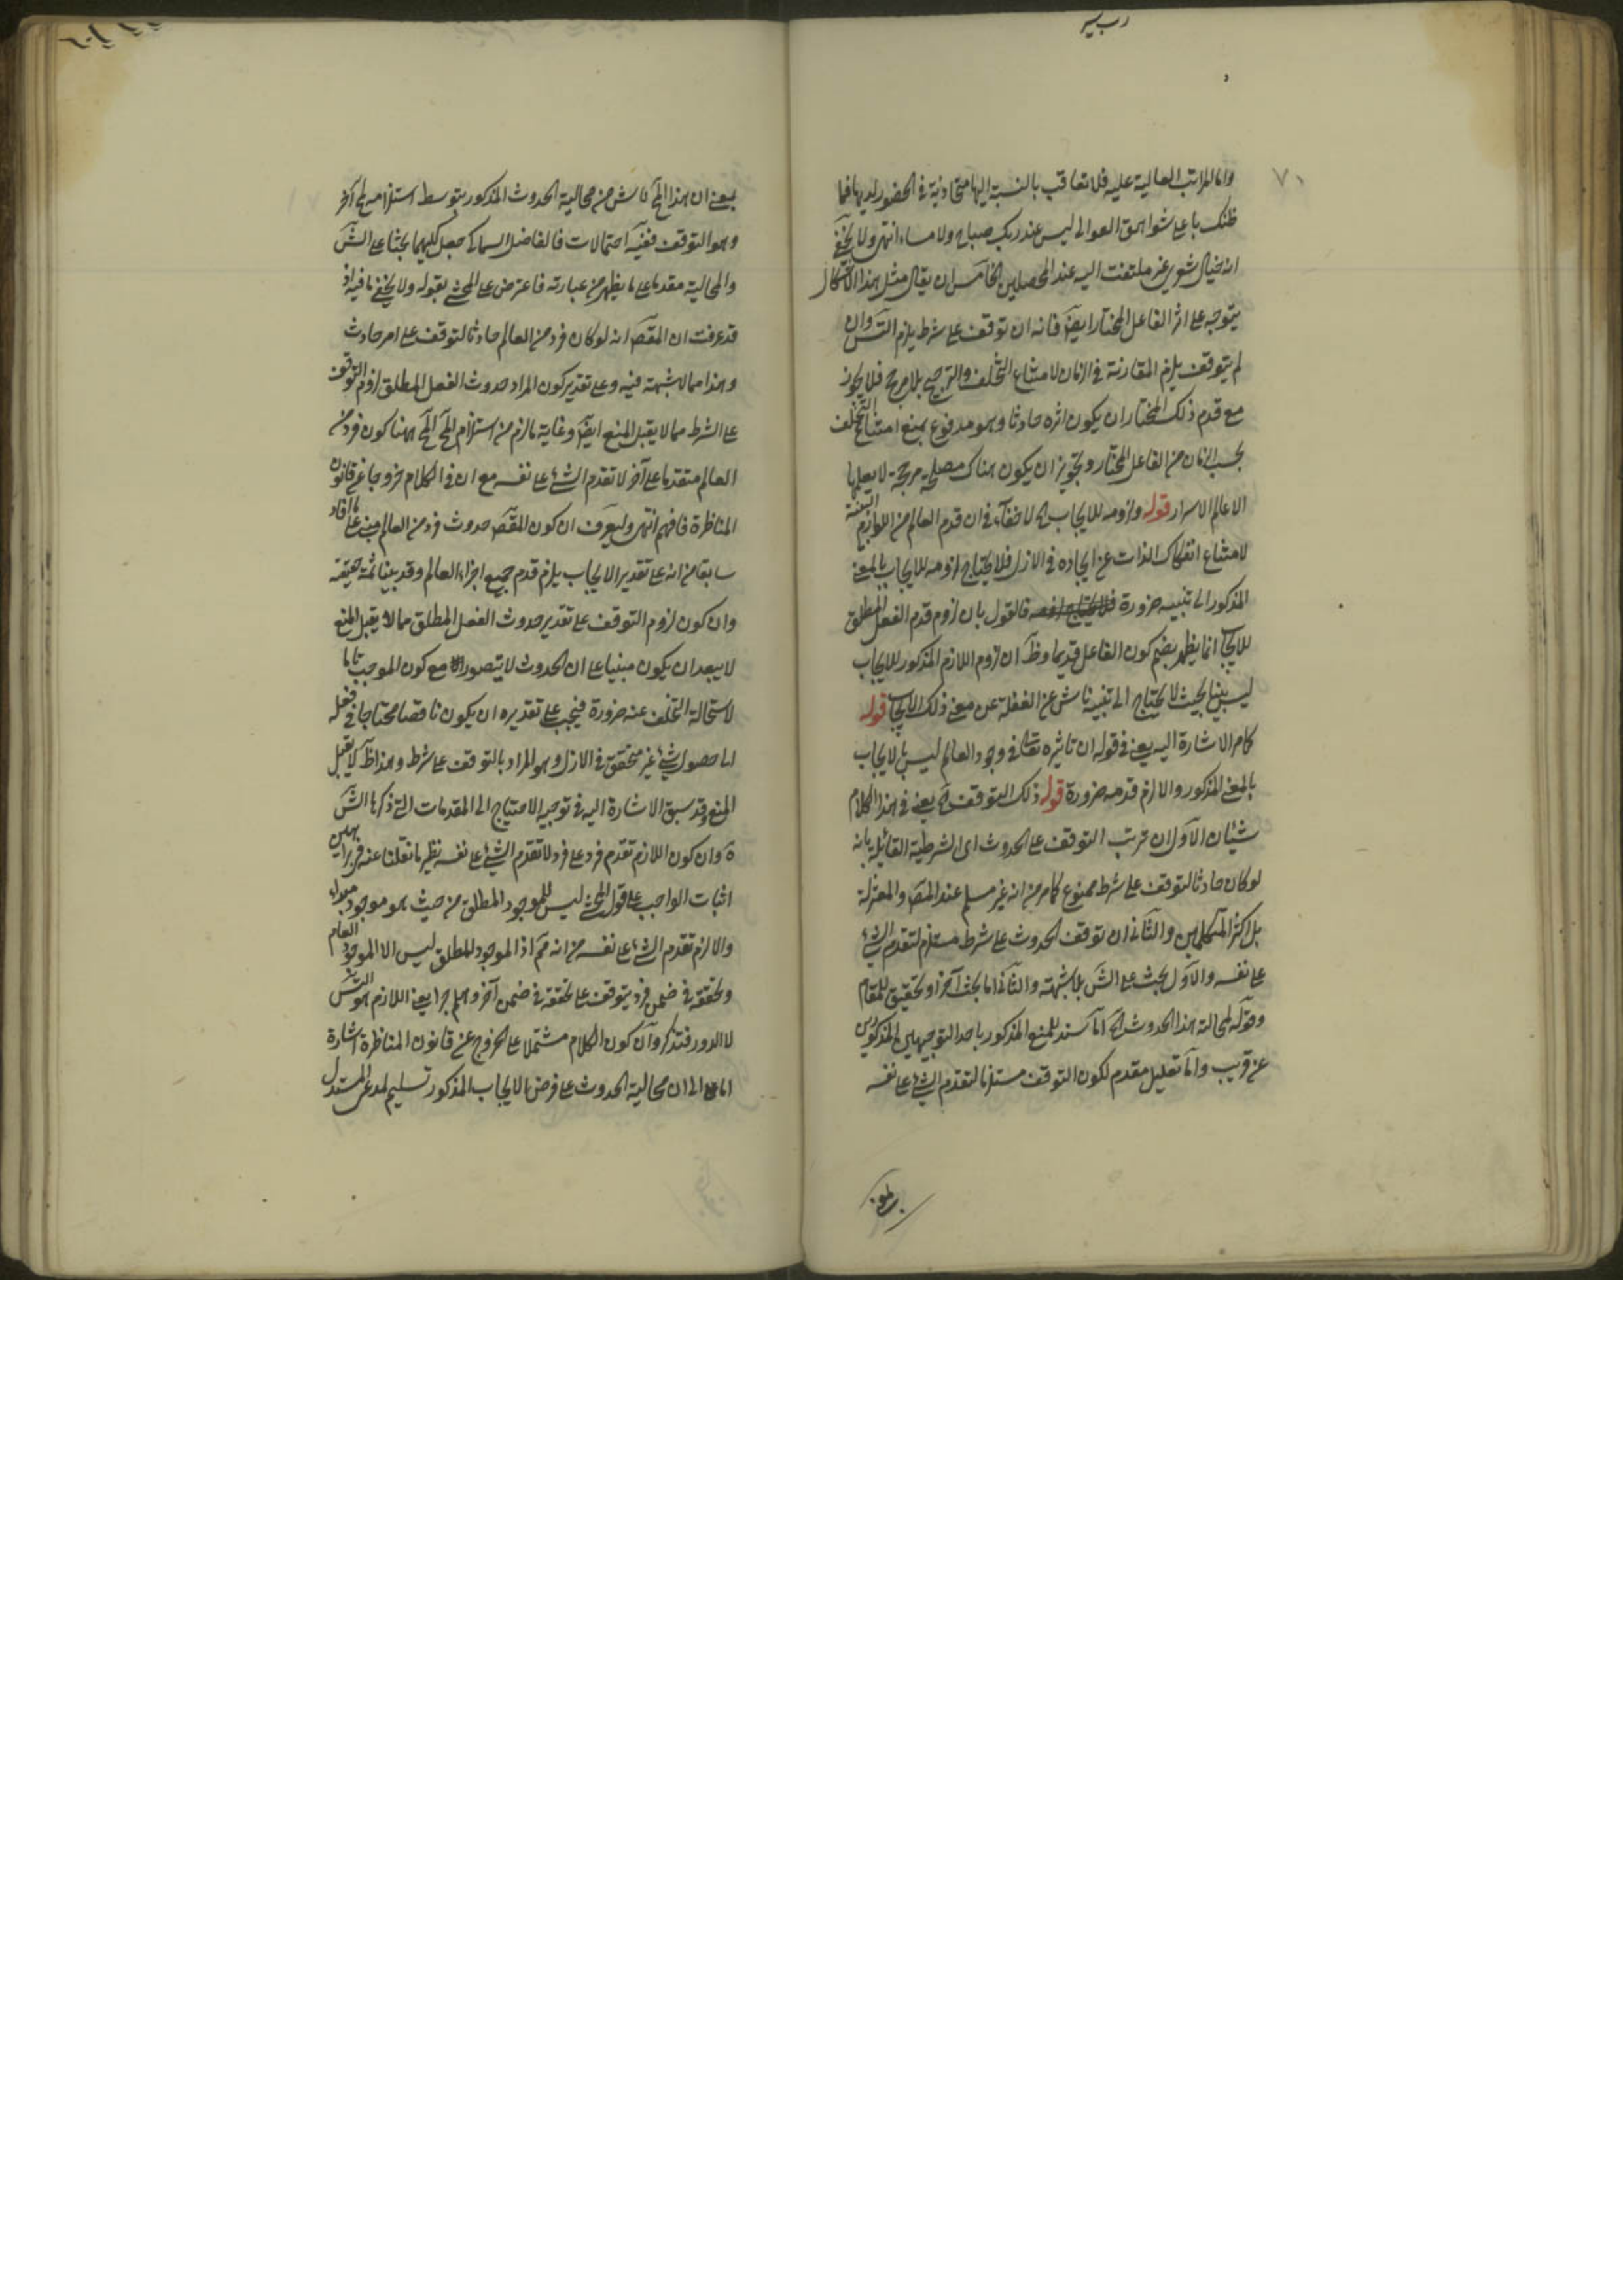 رب يسر
٧٠
واما المراتب العالية عليه فلا تعاقب بالنسبة اليها متحاذية في الحضور لديها فما
ظنك باعلى شواهق العوالى ليس عند ربك صباح ولا مساء انتهى ولا يخفى
انه خيال شعرى غير ملتفت اليه عند المحصلين الخامس ان يقال مثل هذا الاشكال
يتوجه على اثر الفاعل المختار ايضا فانه ان توقف على شرط يلزم التس وان
لم يتوقف يلزم المقارنة في الزمان لامتناع التخلف والترجيح بلا مرجح فلا يجوز
مع قدم ذلك المختار ان يكون اثره حادثا وهو مدفوع بمنع امتناع التخلف
بحسب الزمان من الفاعل المختار وتجويز ان يكون هناك مصلحة مرجحة لا يعلمها
الا عالم الاسرار قوله ولزومه للايجاب الخ لا خفاء في ان قدم العالم من اللوازم البينة
لامتناع انفكاك الذات عن ايجاده في الازل فلا يحتاج لزومه للايجاب بالمعنى
المذكور الى تنبيه ضرورة فالقول بان لزوم قدم الفعل المطلق
للايجاب انما يظهر بضم كون الفاعل قديما وظ ان لزوم اللازم المذكور للايجاب
ليس بينا بحيث لا يحتاج الى تنبيه ناش عن الغفلة عن معنى ذلك الايجاب قوله
كما مر الاشارة اليه يعنى في قوله ان تاثيره تعالى في وجود العالم ليس بالايجاب
بالمعنى المذكور والا لزم قدمه ضرورة قوله ذلك التوقف الخ يعنى في هذا الكلام
شيئان الاول ان ترتب التوقف على الحدوث اى الشرطية القائلة بانه
لو كان حادثا لتوقف على شرط ممنوع كما مر من انه غير مسلم عند المص والمعتزلة
بل اكثر المتكلمين والثانى ان توقف الحدوث على شرط مستلزم لتقدم الشئ
على نفسه والاول بحث على الش بلا شبهة والثانى اما بحث آخر او تحقيق للمقام
وقوله لمحالية هذا الحدوث الخ اما سند للمنع المذكور باحد التوجيهين المذكورين
عن قريب واما تعليل مقدم لكون التوقف مستلزما لتقدم الشئ على نفسه
بمعنى ان هذا المح ناش من محالية الحدوث المذكور بتوسط استلزامه لمح آخر
وهو التوقف ففيه احتمالات فالفاضل السماكى جعل كليهما بحثا على الش
والمحالية مقدما على ما يظهر من عبارته فاعترض على المحشى بقوله ولا يخفى ما فيه اذ
قد عرفت ان المقص انه لو كان فرد من العالم حادثا لتوقف على امر حادث
وهذا مما لا شبهة فيه وعلى تقدير كون المراد حدوث الفعل المطلق لزوم التوقف
على الشرط مما لا يقبل المنع ايضا وغاية ما لزم من استلزام المح المح ههنا كون فرد من
العالم متقدما على آخر لا تقدم الشئ على نفسه مع ان في الكلام خروجا عن قانون
المناظرة فافهم انتهى وليعرف ان كون المقص حدوث فرد من العالم مبنى على ما افاد
سابقا من انه على تقدير الايجاب يلزم قدم جميع اجزاء العالم وقد بينا ثمة حقيقته
وان كون لزوم التوقف على تقدير حدوث الفعل المطلق مما لا يقبل المنع
لا يبعد ان يكون مبنيا على ان الحدوث لا يتصور مع كون الموجب تاما
لاستحالة التخلف عنه ضرورة فيجب على تقديره ان يكون ناقصا محتاجا في فعله
الى حصول شئ غير متحقق في الازل وهو المراد بالتوقف على شرط وهذا ظ لا يقبل
المنع وقد سبق الاشارة اليه في توجيه الاحتياج الى المقدمات التى ذكرها الش
ة وان كون اللازم تقدم فرد على فرد لا تقدم الشئ على نفسه نظير ما نقلنا عنه في براهين
اثبات الواجب على قول المحشى ليس للموجود المطلق من حيث هو موجود مبداء
والا لزم تقدم الشئ على نفسه من انه مم اذ الموجود المطلق ليس الا الموجود العام
وتحققه في ضمن فرد يتوقف على تحققه في ضمن آخر وهلم جرا يعنى اللازم هو التس
لا الدور فتذكر وان كون الكلام مشتملا على الخروج عن قانون المناظرة اشارة
اما الى ان محالية الحدوث على فرض الايجاب المذكور تسليم لمدعى المستدل